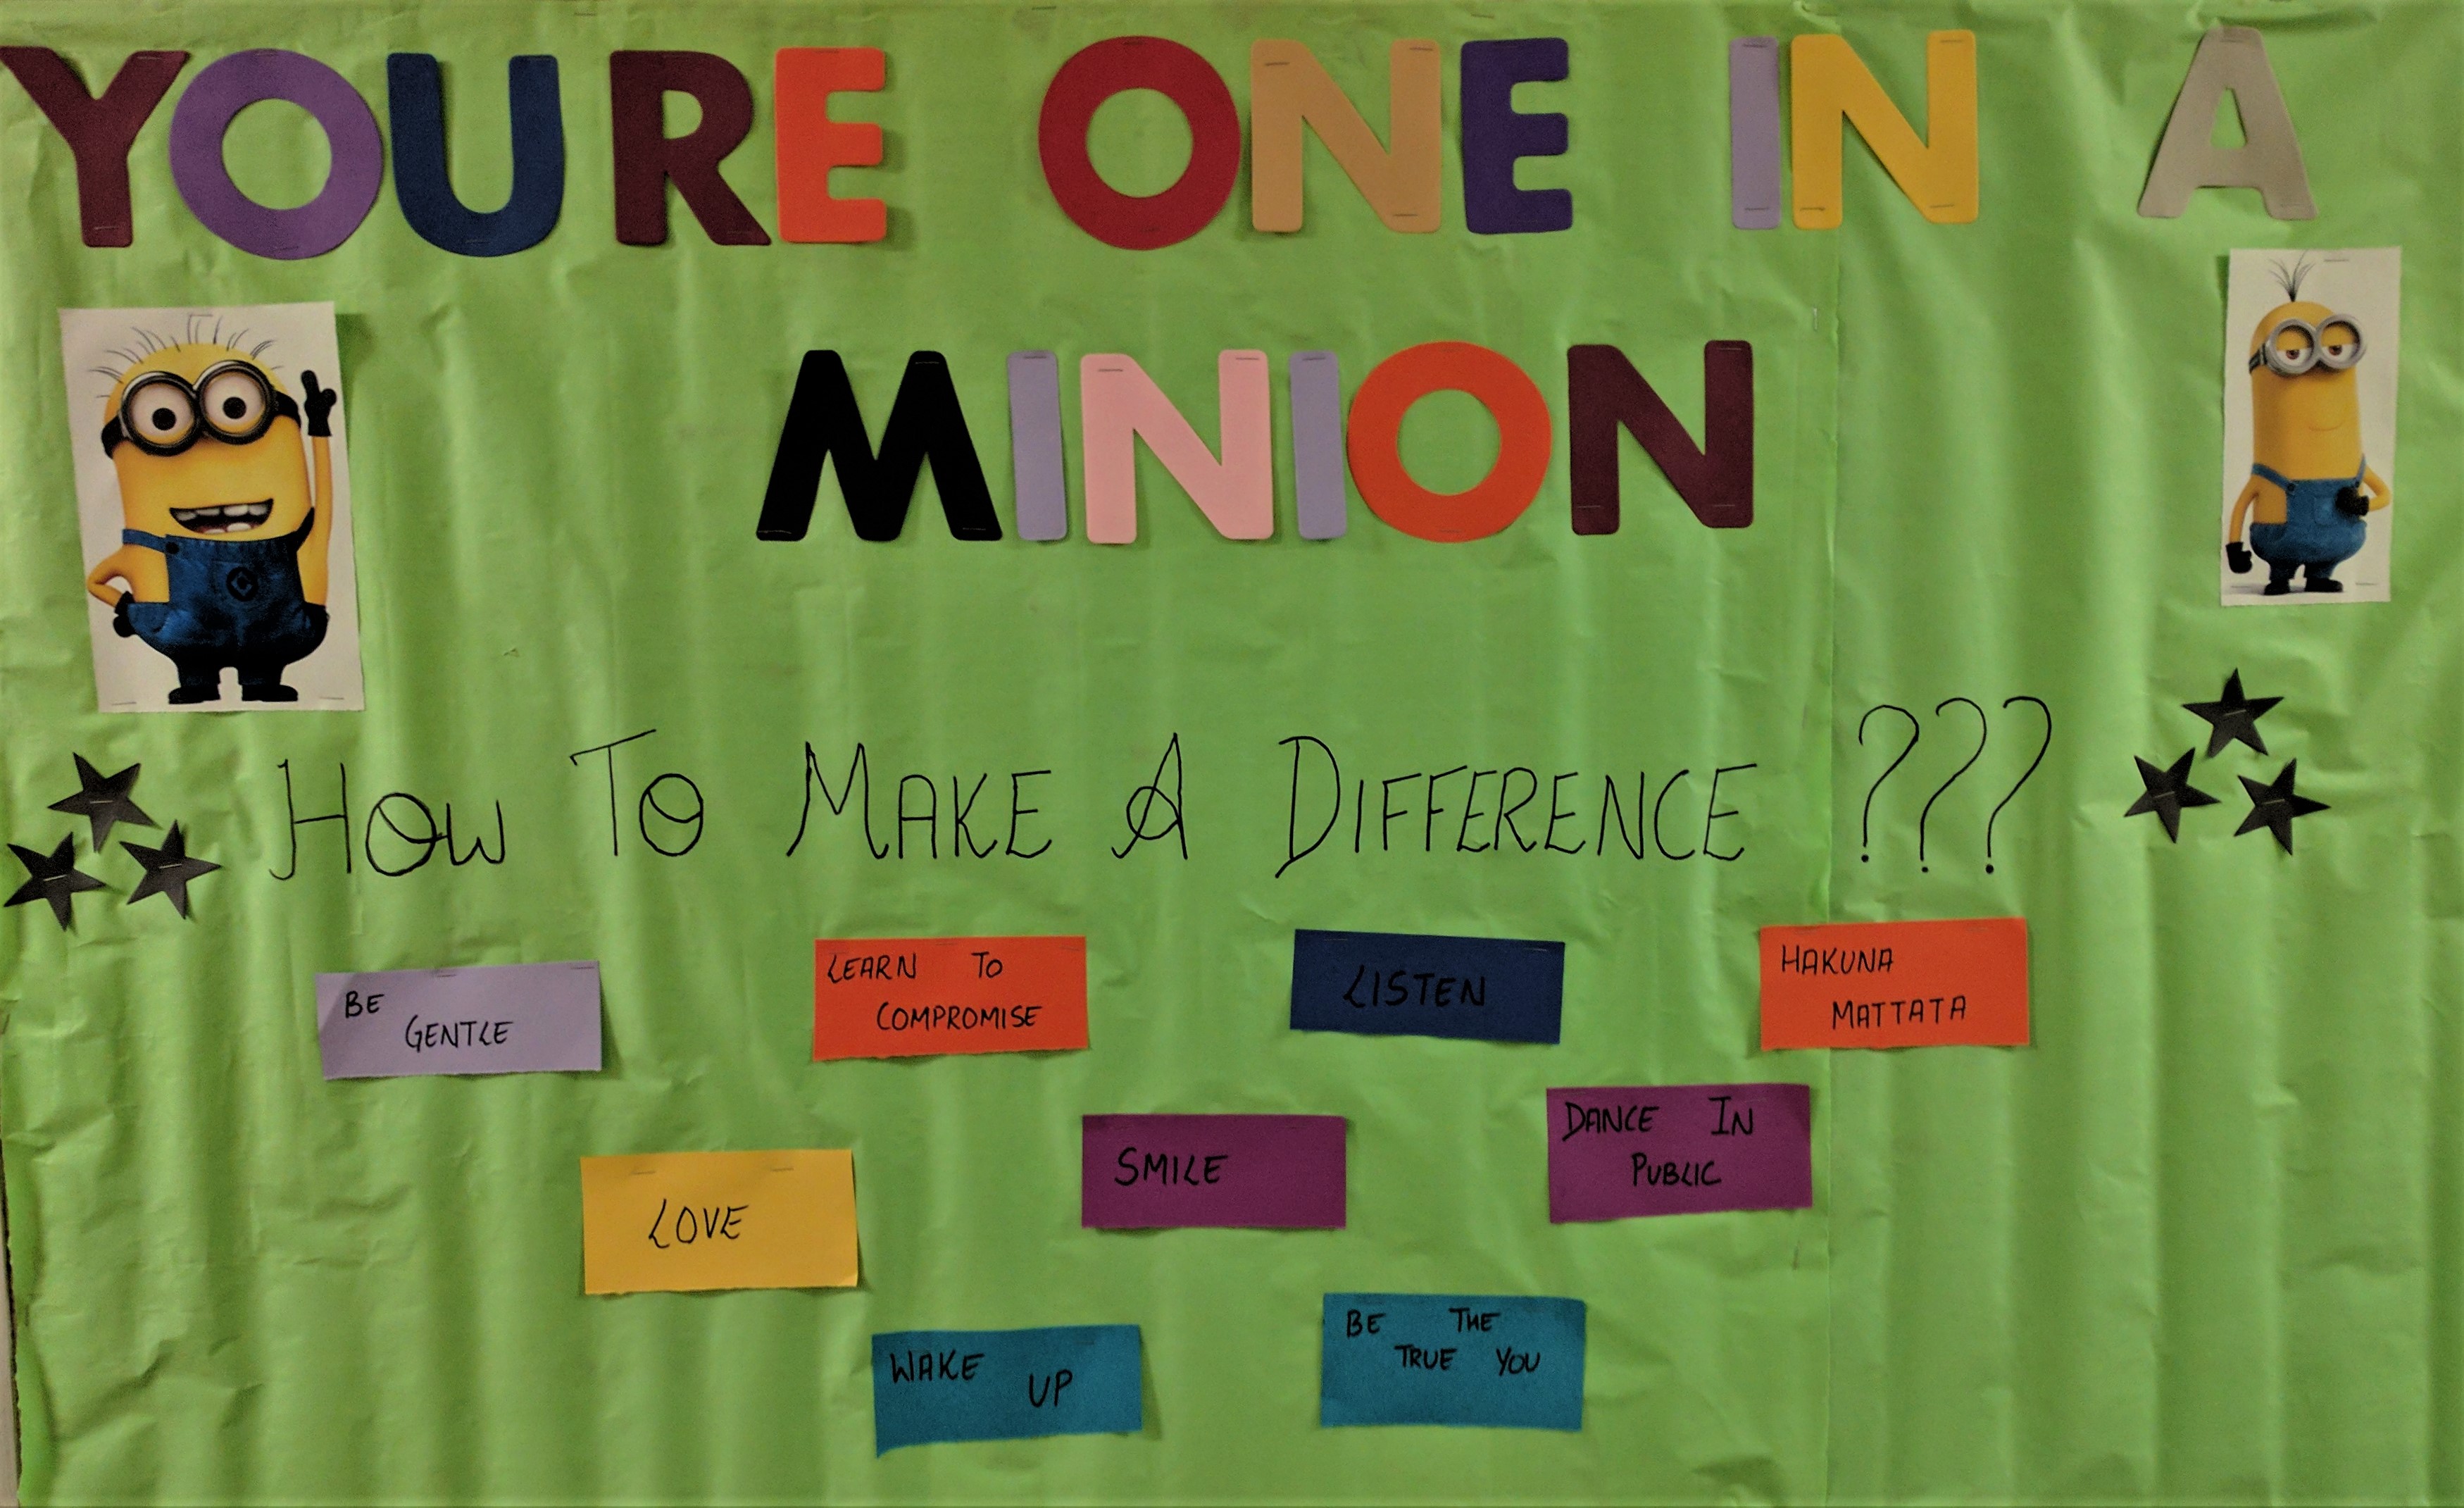 YOURE ONE IN A
MINION
HOW TO MAKE A DIFFERENCE ???
BE
GENTLE
LEARN TO
COMPROMISE
LISTEN
HAKUNA
MATTATA
LOVE
SMILE
DANCE IN
PUBLIC
WAKE
UP
BE THE
TRUE YOU